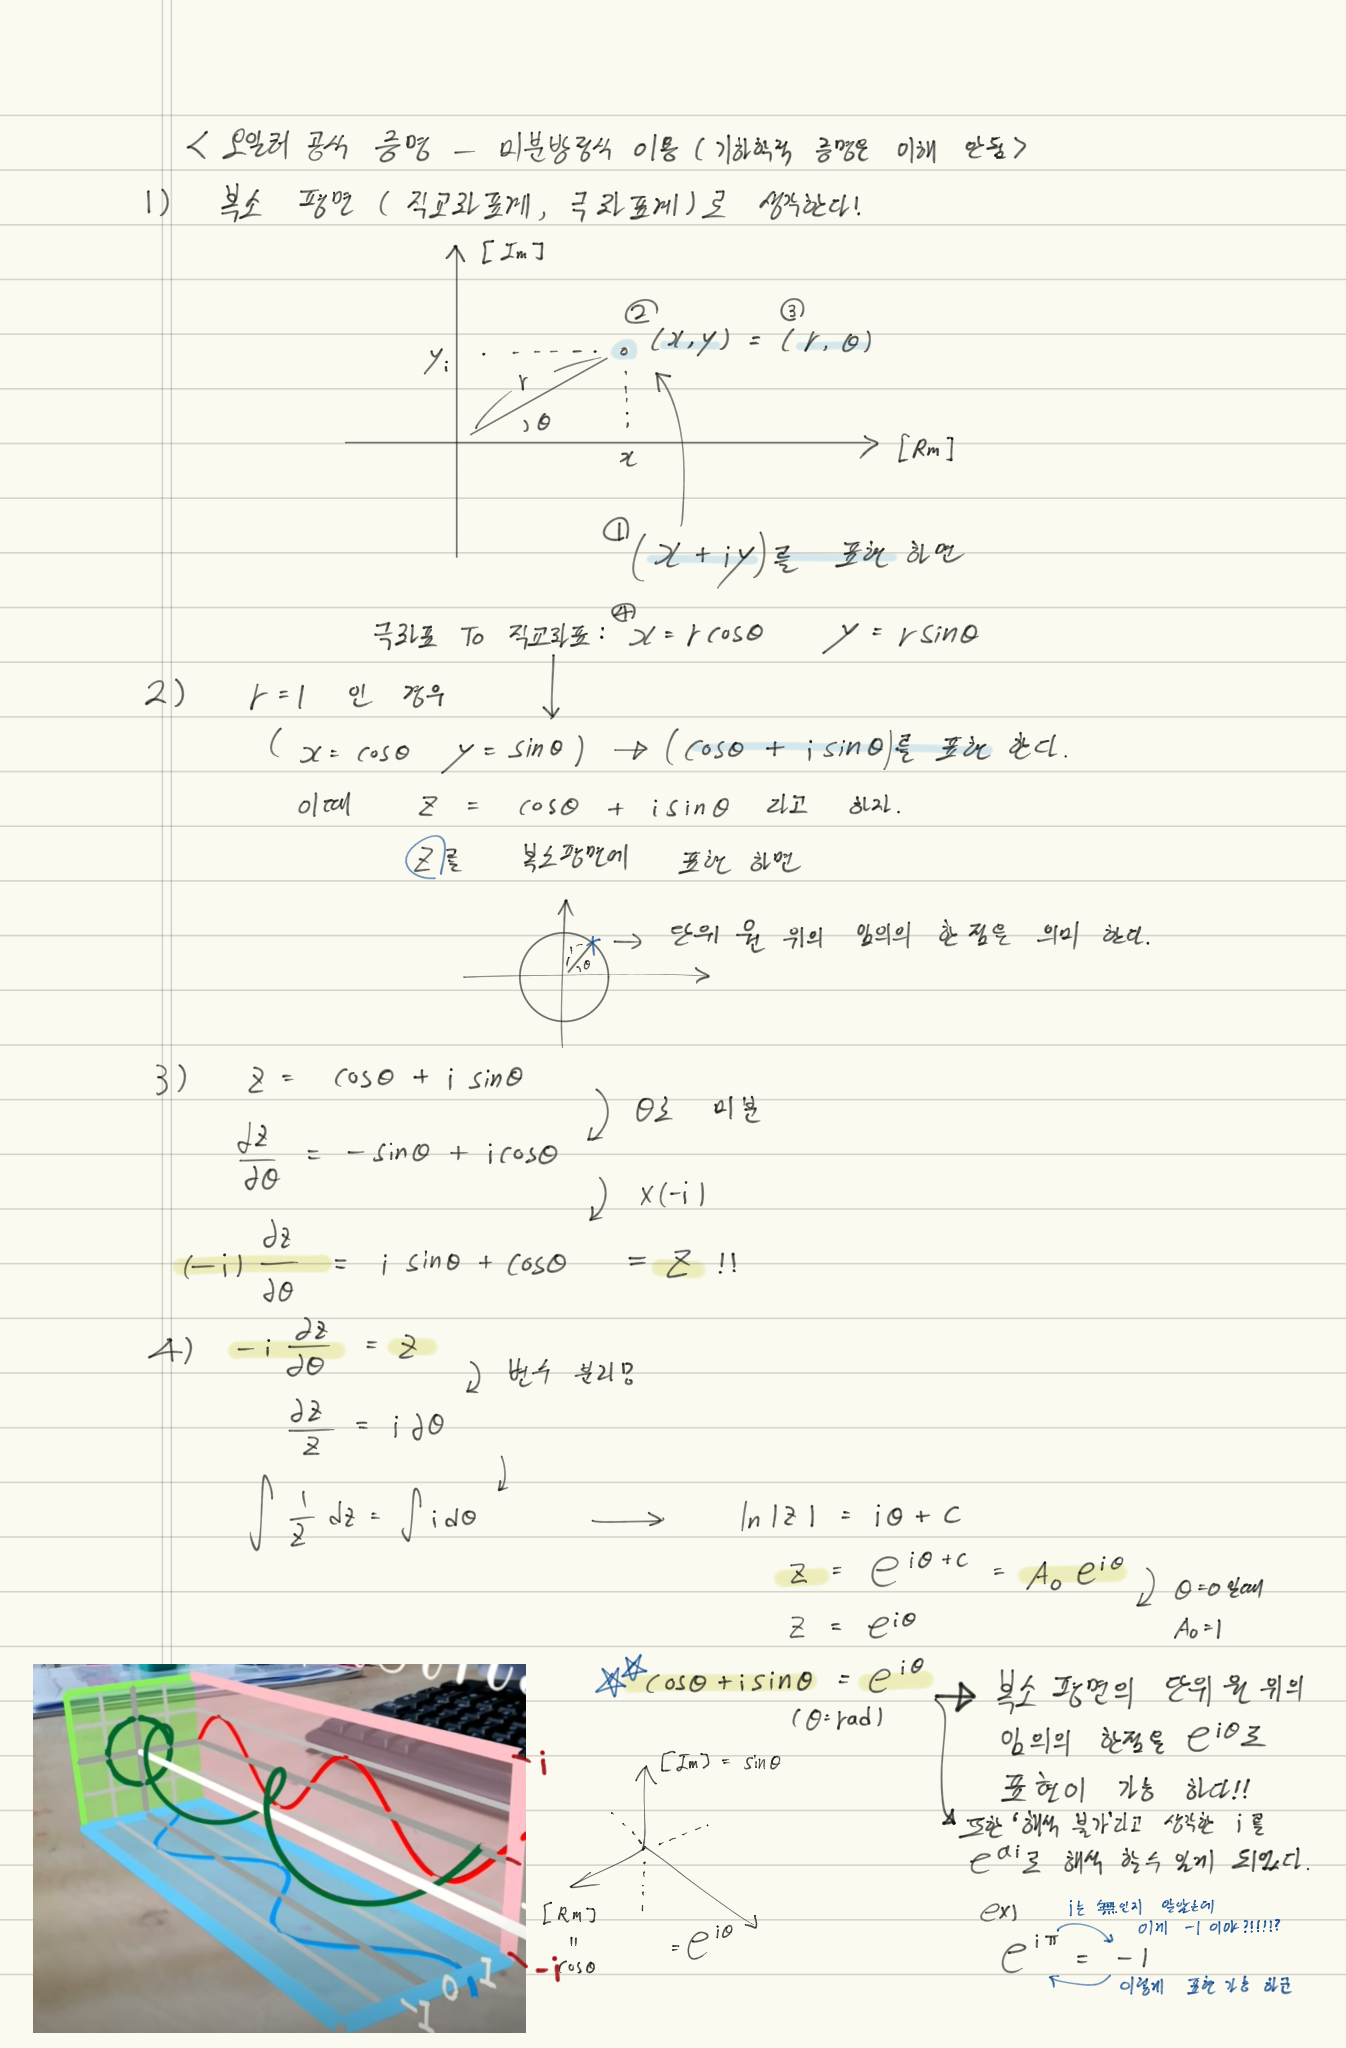 < 오일러 공식 증명 - 미분방정식 이용 (기하학적 증명은 이해 안됨>
1) 복소 평면 ( 직교좌표계, 극좌표계)로 생각한다!
[Im]
② ③
(x,y) = (r, θ)
yi
r
θ
x
[Rm]
① (x + iy)를 표현 하면
극좌표 To 직교좌표: ④ x = r cosθ y = r sinθ
2) r = 1 인 경우
( x = cosθ y = sinθ ) → (cosθ + i sinθ)를 표현 한다.
이때 z = cosθ + i sinθ 라고 하자.
z를 복소평면에 표현 하면
1 θ → 단위 원 위의 임의의 한 점을 의미 한다.
3) z = cosθ + i sinθ
θ로 미분
∂z/∂θ = - sinθ + i cosθ
x(-i)
(-i) ∂z/∂θ = i sinθ + cosθ = z !!
4) -i ∂z/∂θ = z
변수 분리
∂z/z = i ∂θ
∫ 1/z dz = ∫ i dθ → ln|z| = iθ + C
z = e^{iθ+C} = A₀ e^{iθ}
θ=0 일때
z = e^{iθ} A₀=1
☆☆ cosθ + i sinθ = e^{iθ}
(θ=rad)
→ 복소 평면의 단위 원 위의
임의의 한점을 e^{iθ}로
표현이 가능 하다!!
또한 '해석 불가'라고 생각한 i를
e^{ai}로 해석 할수 있게 되었다.
[Im] = sinθ
[Rm]
"
cosθ
= e^{iθ}
ex)
i는 無인지 알았는데
이게 -1 이야?!!!!?
e^{iπ} = -1
이렇게 표현 가능 하군
-i
-i
-1 0 1